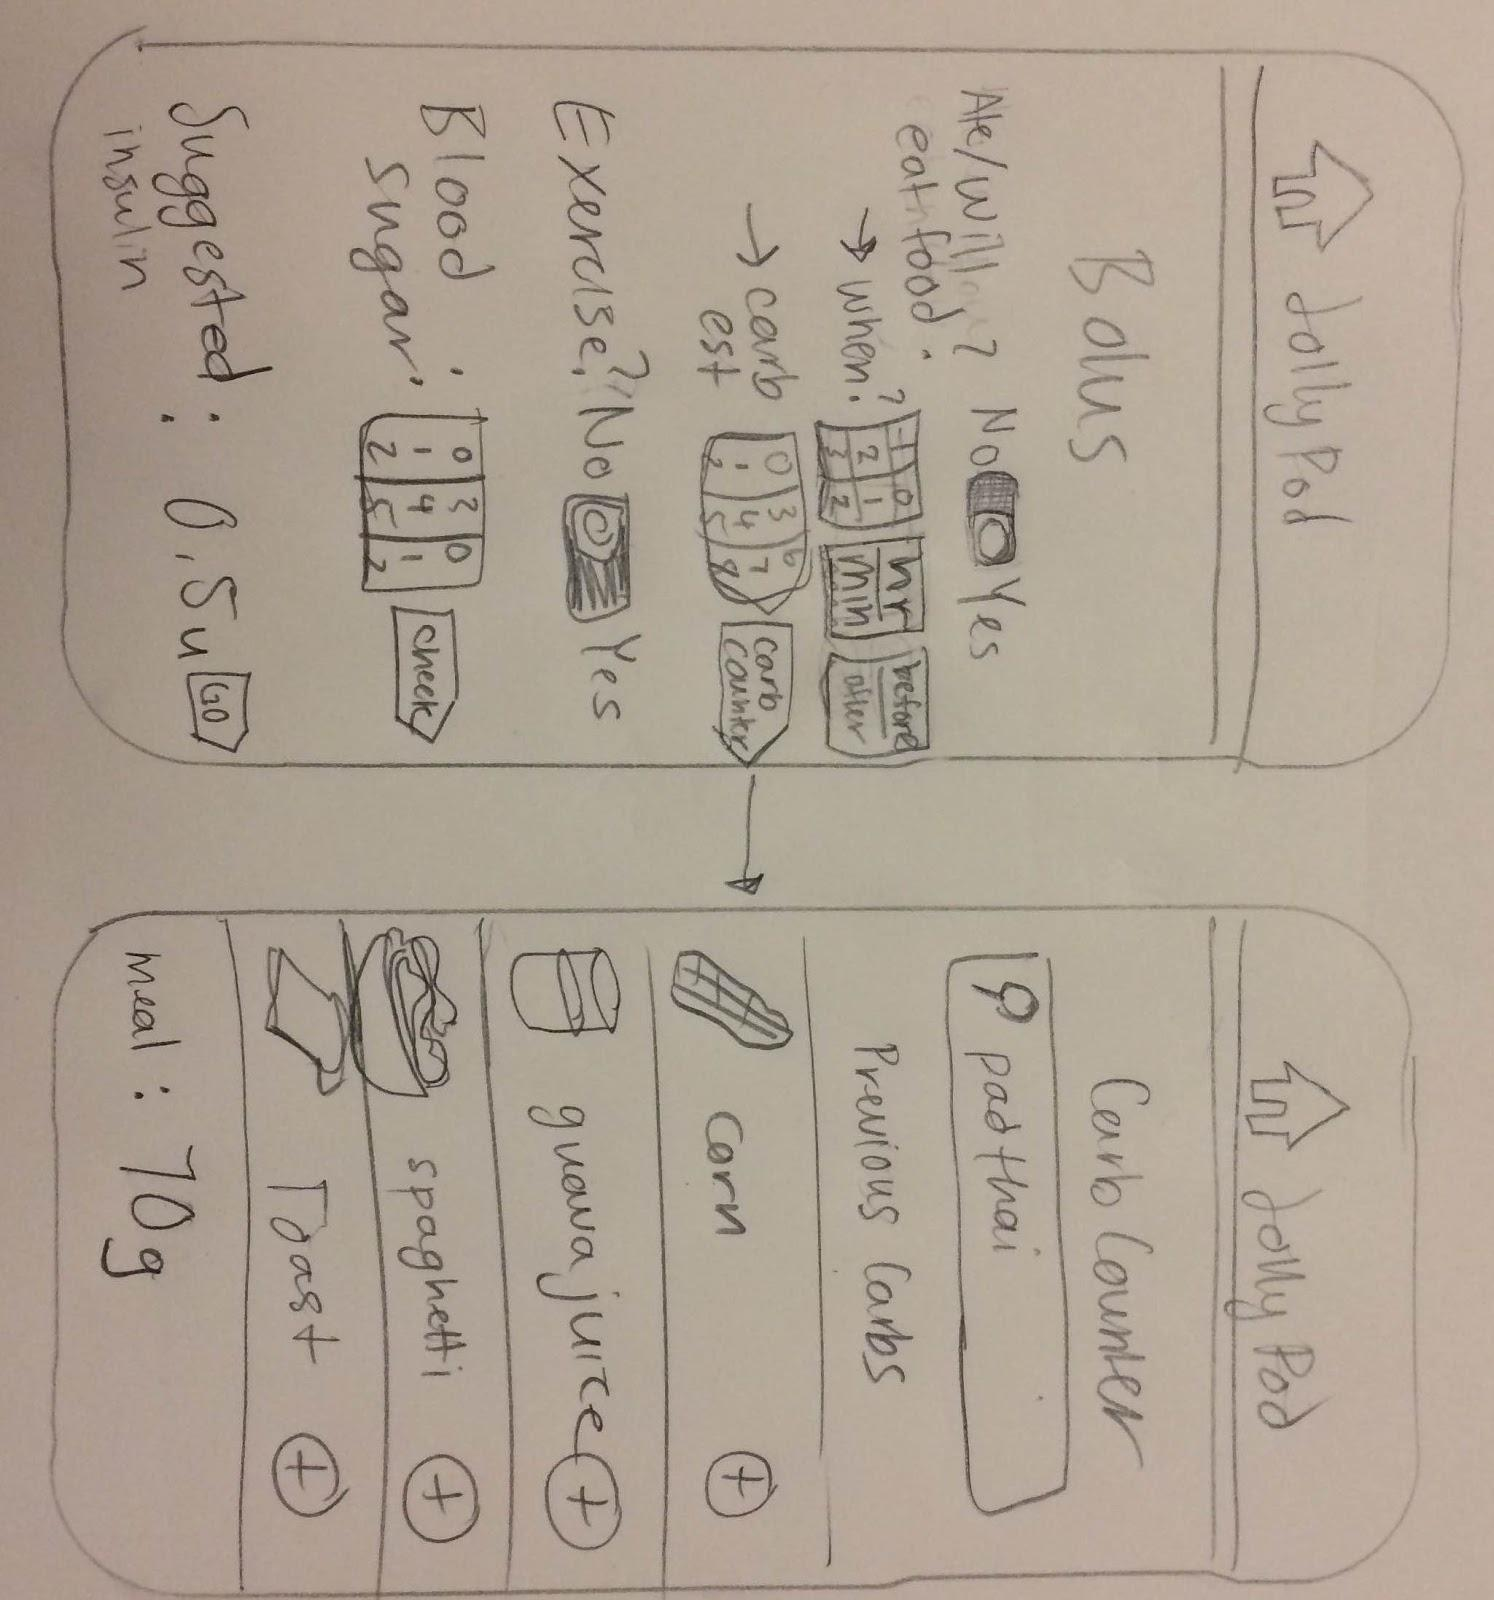 Jolly Pod
Bolus
Ate/will eat food? No Yes
→ when? -1 0 hr before
2 1
3 2 min after
→ carb est 0 3 6 carb counter
1 4 7
2 5 8
Exercise? No Yes
Blood sugar: 0 3 0
1 4 1 check
2 5 2
Suggested insulin : 0.5u GO
Jolly Pod
Carb Counter
pad thai
Previous Carbs
corn +
guava juice +
spaghetti +
Toast +
meal : 70g